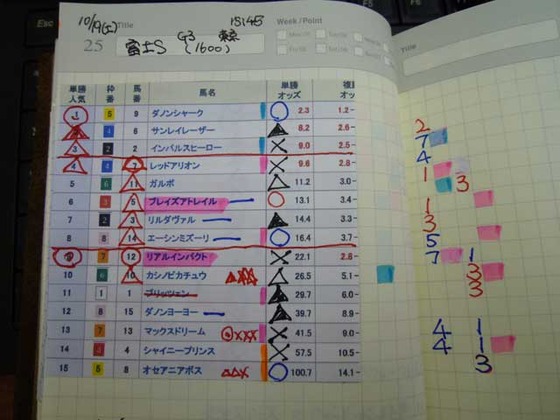 Esc
10/19(土)
Title
15:45
Week / Point
25
富士S G3 東京 (1600)
Title
単勝人気 枠番 馬番 馬名 単勝オッズ 複
1 5 9 ダノンシャーク 2.3 1.2-
6 サンレイレーザー 8.2 2.6-
3 2 2 インパルスヒーロー 9.0 2.5-
4 4 7 レッドアリオン 9.6 2.8-
5 6 11 ガルボ 11.2 3.0-
6 3 5 ブレイズアトレイル 13.1 3.4-
7 2 3 リルダヴァル 14.4 3.3-
8 8 14 エーシンミズーリ 16.4 3.7-
7 12 リアルインパクト 22.1 2.8-
10 6 10 カシノピカチュウ 26.5 5.1-
11 1 1 ブリッツェン 29.7 6.0-
12 8 15 ダノンヨーヨー 39.7 8.9-
13 7 13 マックスドリーム 41.5 9.0-
14 4 シャイニープリンス 57.5 10.5-
15 5 8 オセアニアボス 100.7 14.1-
2
7
4
1 3
1
3
5
7 1
3
3
4 1
4 1
3